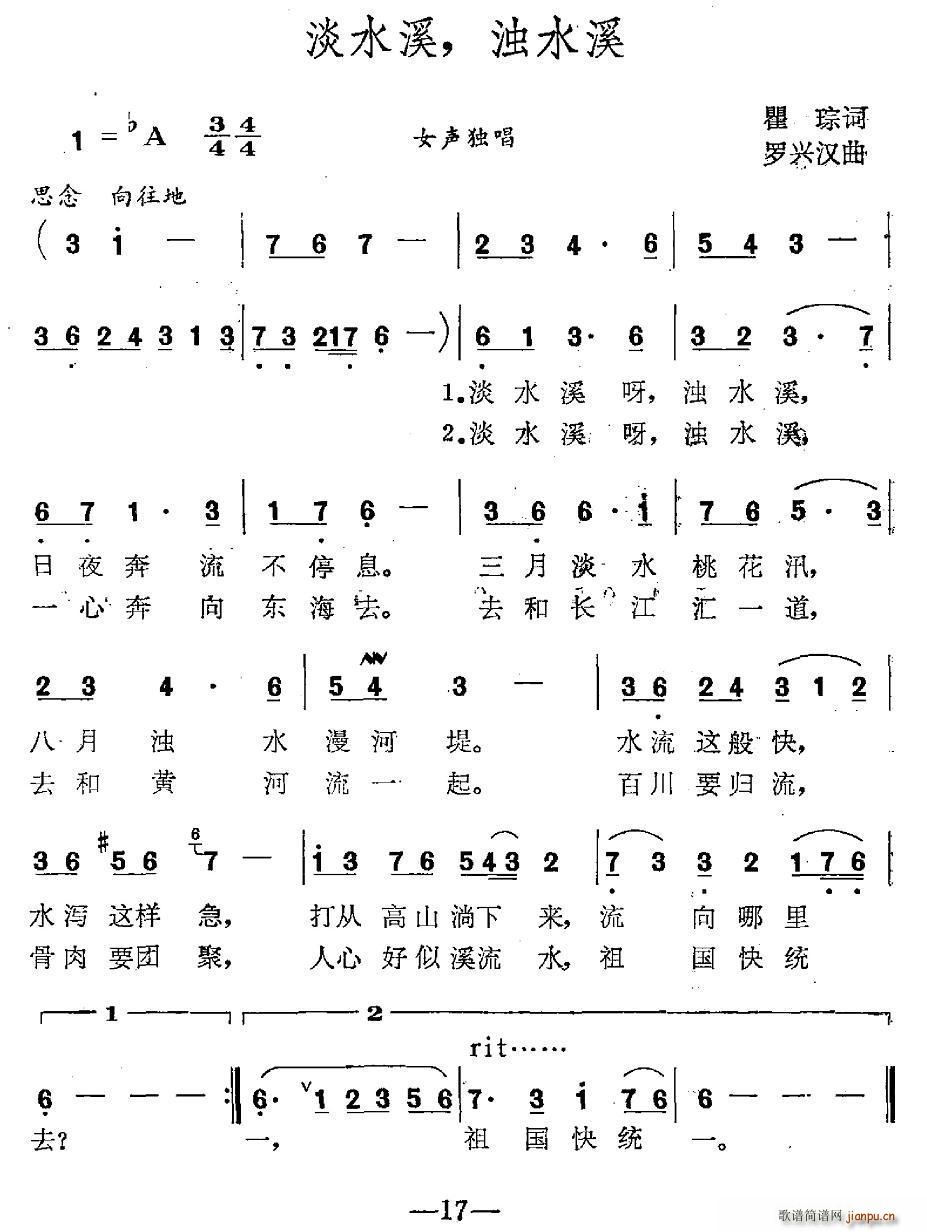 淡水溪，浊水溪
1 = ♭A 3/4 4/4 女声独唱 瞿 琮词
罗兴汉曲
思念 向往地
( 3 i — | 7 6 7 — | 2 3 4 · 6 | 5 4 3 — |
3 6 2 4 3 1 3 | 7 3 2 1 7 6 — ) | 6 1 3 · 6 | 3 2 3 · 7 |
1.淡 水 溪 呀，浊 水 溪，
2.淡 水 溪 呀，浊 水 溪，
6 7 1 · 3 | 1 7 6 — | 3 6 6 · i | 7 6 5 · 3 |
日 夜 奔 流 不 停 息。 三 月 淡 水 桃 花 汛，
一 心 奔 向 东 海 去。 去 和 长 江 汇 一 道，
2 3 4 · 6 | 5 4 3 — | 3 6 2 4 3 1 2 |
八 月 浊 水 漫 河 堤。 水 流 这 般 快，
去 和 黄 河 流 一 起。 百 川 要 归 流，
3 6 #5 6 6 7 — | i 3 7 6 5 4 3 2 | 7 3 3 2 1 7 6 |
水 泻 这 样 急， 打 从 高 山 淌 下 来，流 向 哪 里
骨 肉 要 团 聚， 人 心 好 似 溪 流 水，祖 国 快 统
1 2
rit……
6 — — — :‖ 6 · ∨ 1 2 3 5 6 | 7 · 3 i 7 6 | 6 — — — ‖
去？ 一， 祖 国 快 统 一。
—17—
歌谱简谱网
jianpu.cn